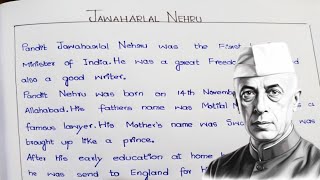 JAWAHARLAL NEHRU
Pandit Jawaharlal Nehru was the First
Minister of India. He was a great Freedom
also a good writer.
Pandit Nehru was born on 14th November
Allahabad. His fathers name was Motilal
famous lawyer. His Mother's name was
brought up like a prince.
After his early education at home
he was send to England for